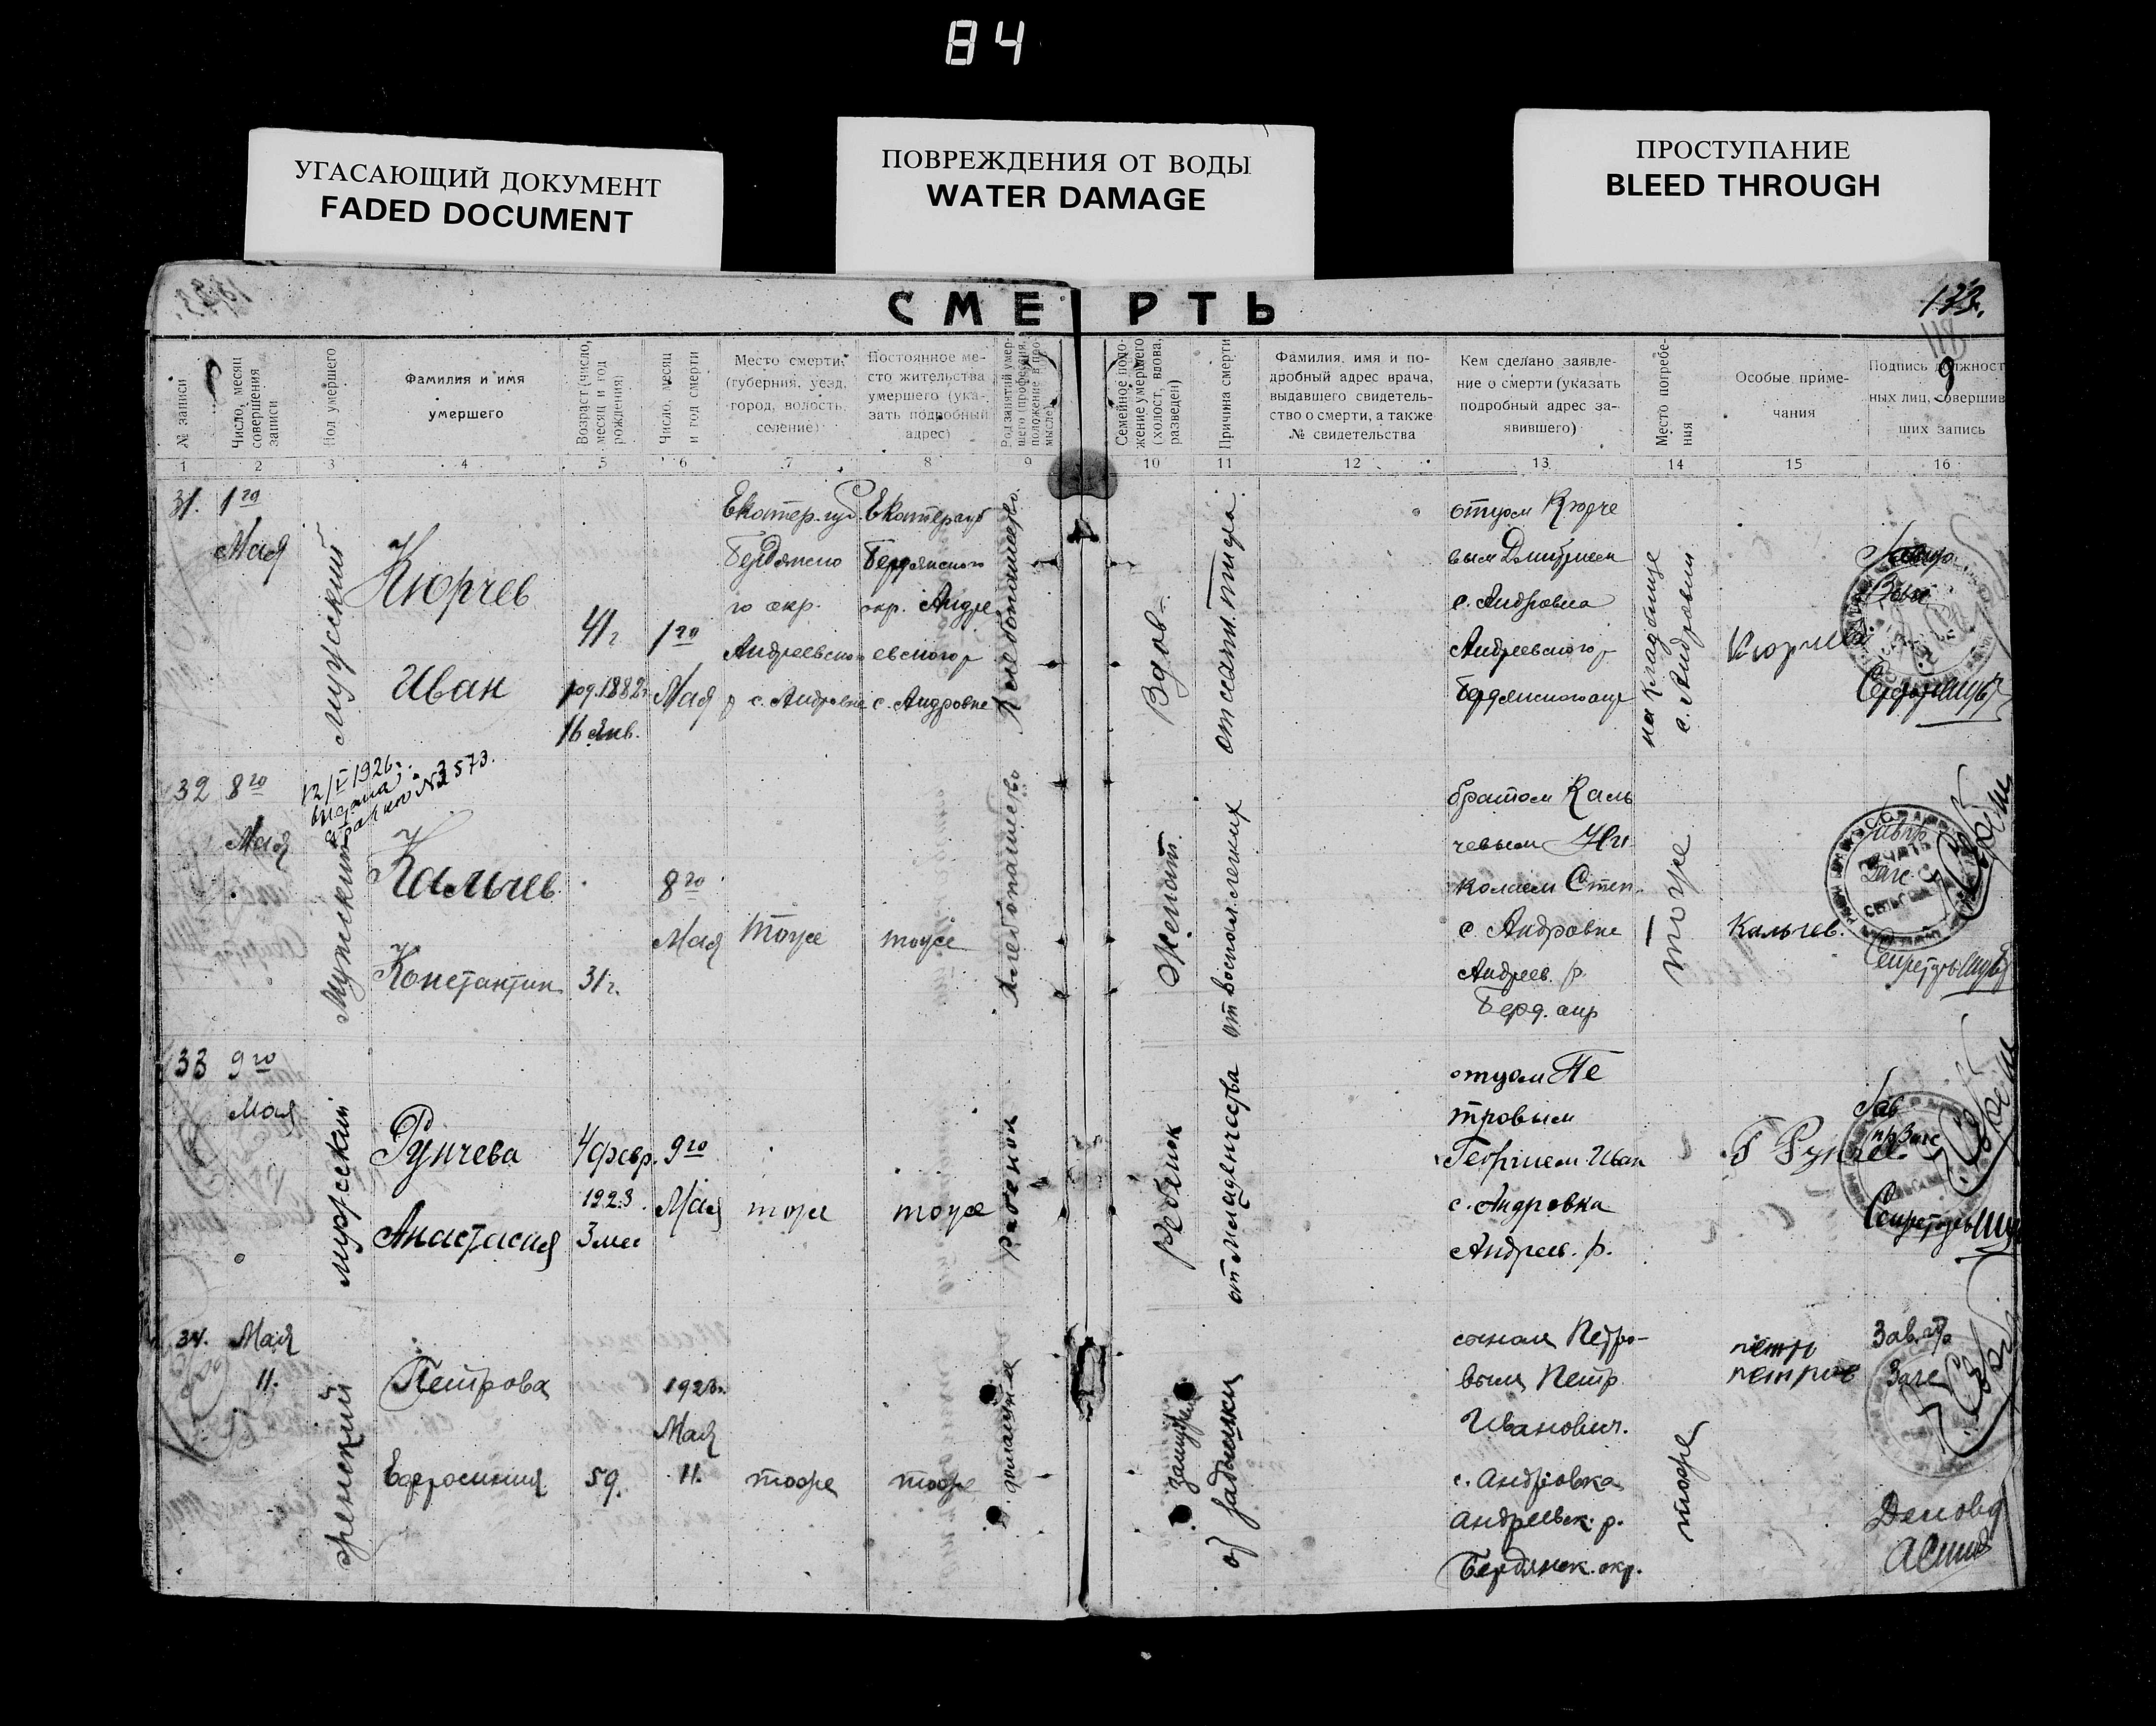 84
УГАСАЮЩИЙ ДОКУМЕНТ
FADED DOCUMENT
ПОВРЕЖДЕНИЯ ОТ ВОДЫ
WATER DAMAGE
ПРОСТУПАНИЕ
BLEED THROUGH
СМЕРТЬ
118
9
№ записи
Число, месяц
совершения
записи
Пол умершего
Фамилия и имя
умершего
Возраст (число,
месяц и год
рождения)
Число, месяц
и год смерти
Место смерти
(губерния, уезд,
город, волость,
селение)
Постоянное ме-
сто жительства
умершего (ука-
зать подробный
адрес)
Род занятий умер-
шего (профессия,
положение в про-
мысле)
Семейное поло-
жение умершего
(холост, вдова,
разведен)
Причина смерти
Фамилия, имя и по-
дробный адрес врача,
выдавшего свидетель-
ство о смерти, а также
№ свидетельства
Кем сделано заявле-
ние о смерти (указать
подробный адрес за-
явившего)
Место погребе-
ния
Особые приме-
чания
Подпись должност
ных лиц, совершив
ших запись
1 2 3 4 5 6 7 8 9 10 11 12 13 14 15 16
31.
1го
Мая
мужский
Кюрчев
Иван
41 г
род. 1882г
16 Янв.
1го
Мая
Екатер. губ.
Бердянско
го окр.
Андреевского
р с. Андровке
Екатер губ
Бердянского
окр. Андре
евского р
с. Андровке
Хлебопашество.
Вдов.
от сып. тифа.
отцом Кюрче
вым Дмитрием
с. Андровка
Андреевского р
Бердянского окр
на кладбище
с. Андровки
Кюрчев.
Секретарь
32
8го
Мая
12/V 1926г.
выдана
№ 2573.
Мужский
Кальчев
Константин
31 г.
8го
Мая
тоже
тоже
Хлебопашество
Женат.
от воспал. легких
братом Каль
чевым Ни
колаем Степ.
с. Андровке
Андреев. р.
Берд. окр
тоже
Кальчев.
Загс
ПЕЧАТЬ
Секретарь
33
9го
Мая
мужский
Рунчева
Анастасия
4 февр.
1923
3 мес
9го
Мая
тоже
тоже
ребенок
ребенок
от младенчества
отцом Пе
тровым
Георгием Иван
с. Андровка
Андреев. р.
Г Рунчев
Зав
Секретарь
34.
Мая
11.
женский
Петрова
Ефросиния
59.
1923г.
Мая
11.
тоже
тоже
домашняя
замужем
от
сыном Петро-
вым Петр
Иванович.
с. Андровка
андреевск. р.
Бердянск. окр.
тоже
петр
петров
Зав. п/о
Загс